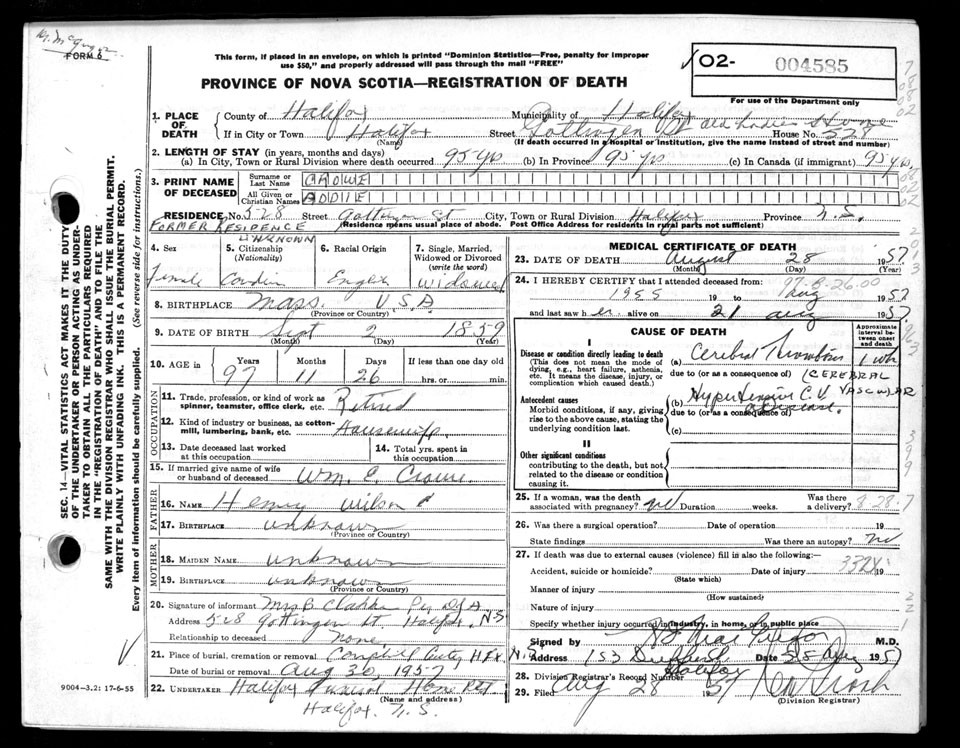 Dr. McGregor
FORM 6
This form, if placed in an envelope, on which is printed "Dominion Statistics—Free, penalty for improper
use $50," and properly addressed will pass through the mail "FREE"
PROVINCE OF NOVA SCOTIA—REGISTRATION OF DEATH
02- 004585
For use of the Department only
1. PLACE OF DEATH
County of Halifax Municipality of Halifax
If in City or Town Halifax Street Gottingen St Old Ladies Home House No. 528
(Name) (If death occurred in a hospital or institution, give the name instead of street and number)
2. LENGTH OF STAY (in years, months and days)
(a) In City, Town or Rural Division where death occurred 95 yrs (b) In Province 95 yrs (c) In Canada (if immigrant) 95 yrs
3. PRINT NAME OF DECEASED
Surname or Last Name CROWE
All Given or Christian Names ADDIE
RESIDENCE No. 528 Street Gottingen St City, Town or Rural Division Halifax Province N.S.
(Residence means usual place of abode. Post Office Address for residents in rural parts not sufficient)
FORMER RESIDENCE UNKNOWN
4. Sex Female
5. Citizenship (Nationality) Canadian
6. Racial Origin English
7. Single, Married, Widowed or Divorced (write the word) Widowed
8. BIRTHPLACE Mass. U.S.A.
(Province or Country)
9. DATE OF BIRTH Sept 2 1859
(Month) (Day) (Year)
10. AGE in Years Months Days If less than one day old
97 11 26 hrs. or min.
OCCUPATION
11. Trade, profession, or kind of work as spinner, teamster, office clerk, etc. Retired
12. Kind of industry or business, as cotton-mill, lumbering, bank, etc. Housewife
13. Date deceased last worked at this occupation
14. Total yrs. spent in this occupation
15. If married give name of wife or husband of deceased Wm. E. Crowe
FATHER
16. NAME Henry Wilson
17. BIRTHPLACE unknown
(Province or Country)
MOTHER
18. MAIDEN NAME unknown
19. BIRTHPLACE unknown
(Province or Country)
20. Signature of informant Mrs B. Clarke Per
Address 528 Gottingen St. Halifax N.S
Relationship to deceased none
21. Place of burial, cremation or removal Hfx. N.S
Date of burial or removal Aug 30, 1957
22. UNDERTAKER Halifax Funeral Home
(Name and address)
Halifax. N.S.
MEDICAL CERTIFICATE OF DEATH
23. DATE OF DEATH August 28 1957
(Month) (Day) (Year)
24. I HEREBY CERTIFY that I attended deceased from:
1955 19 to Aug 1957
and last saw her alive on 21 Aug 1957.
CAUSE OF DEATH
Approximate interval between onset and death
I
Disease or condition directly leading to death
(This does not mean the mode of dying, e.g., heart failure, asthenia, etc. It means the disease, injury, or complication which caused death.)
(a) Cerebral Thrombosis 1 wk
due to (or as a consequence of) (CEREBRAL VASCULAR
Antecedent causes
Morbid conditions, if any, giving rise to the above cause, stating the underlying condition last.
(b) Hypertensive C.V. disease.
due to (or as a consequence of)
(c)
II
Other significant conditions
contributing to the death, but not related to the disease or condition causing it.
25. If a woman, was the death associated with pregnancy? no Duration weeks. Was there a delivery? 8-28-7
26. Was there a surgical operation? Date of operation 19
State findings Was there an autopsy? no
27. If death was due to external causes (violence) fill in also the following:—
Accident, suicide or homicide? Date of injury 332X 19
(State which)
Manner of injury
(How sustained)
Nature of injury
Specify whether injury occurred in industry, in home, or in public place
Signed by M.D.
Address 153 Halifax N.S Date 28 Aug 1957
28. Division Registrar's Record Number
29. Filed Aug 28 1957
(Division Registrar)
SEC. 14—VITAL STATISTICS ACT MAKES IT THE DUTY
OF THE UNDERTAKER OR PERSON ACTING AS UNDER-
TAKER TO OBTAIN ALL THE PARTICULARS REQUIRED
IN THE "REGISTRATION OF DEATH" AND TO FILE THE
SAME WITH THE DIVISION REGISTRAR WHO SHALL ISSUE THE BURIAL PERMIT.
WRITE PLAINLY WITH UNFADING INK. THIS IS A PERMANENT RECORD.
Every item of information should be carefully supplied. (See reverse side for instructions.)
9004—3.2: 17-6-55